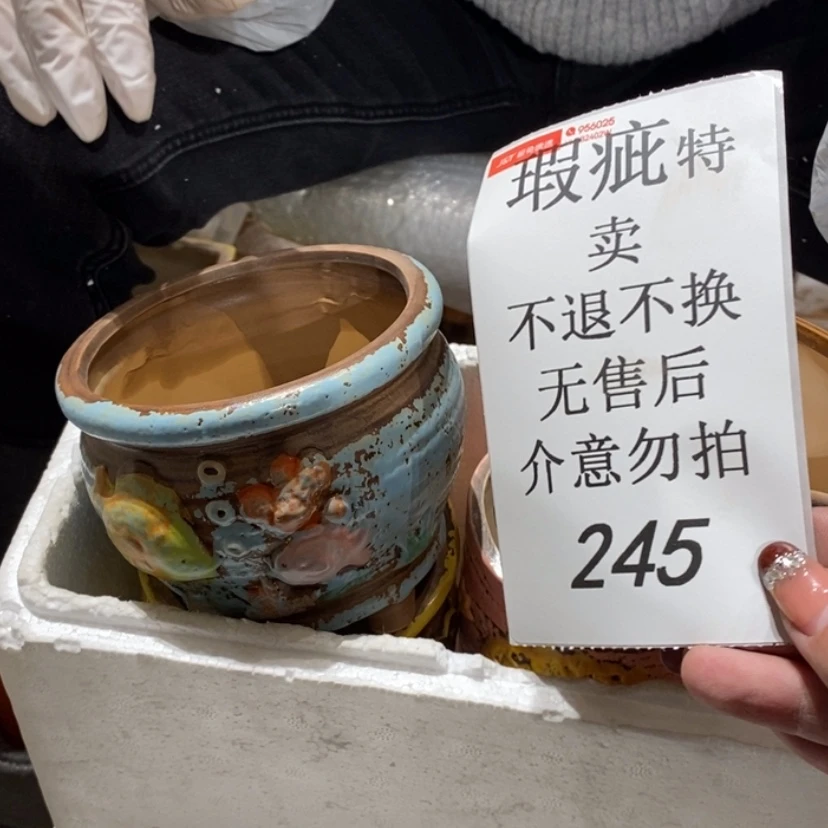 956025
瑕疵特
卖
不退不换
无售后
介意勿拍
245